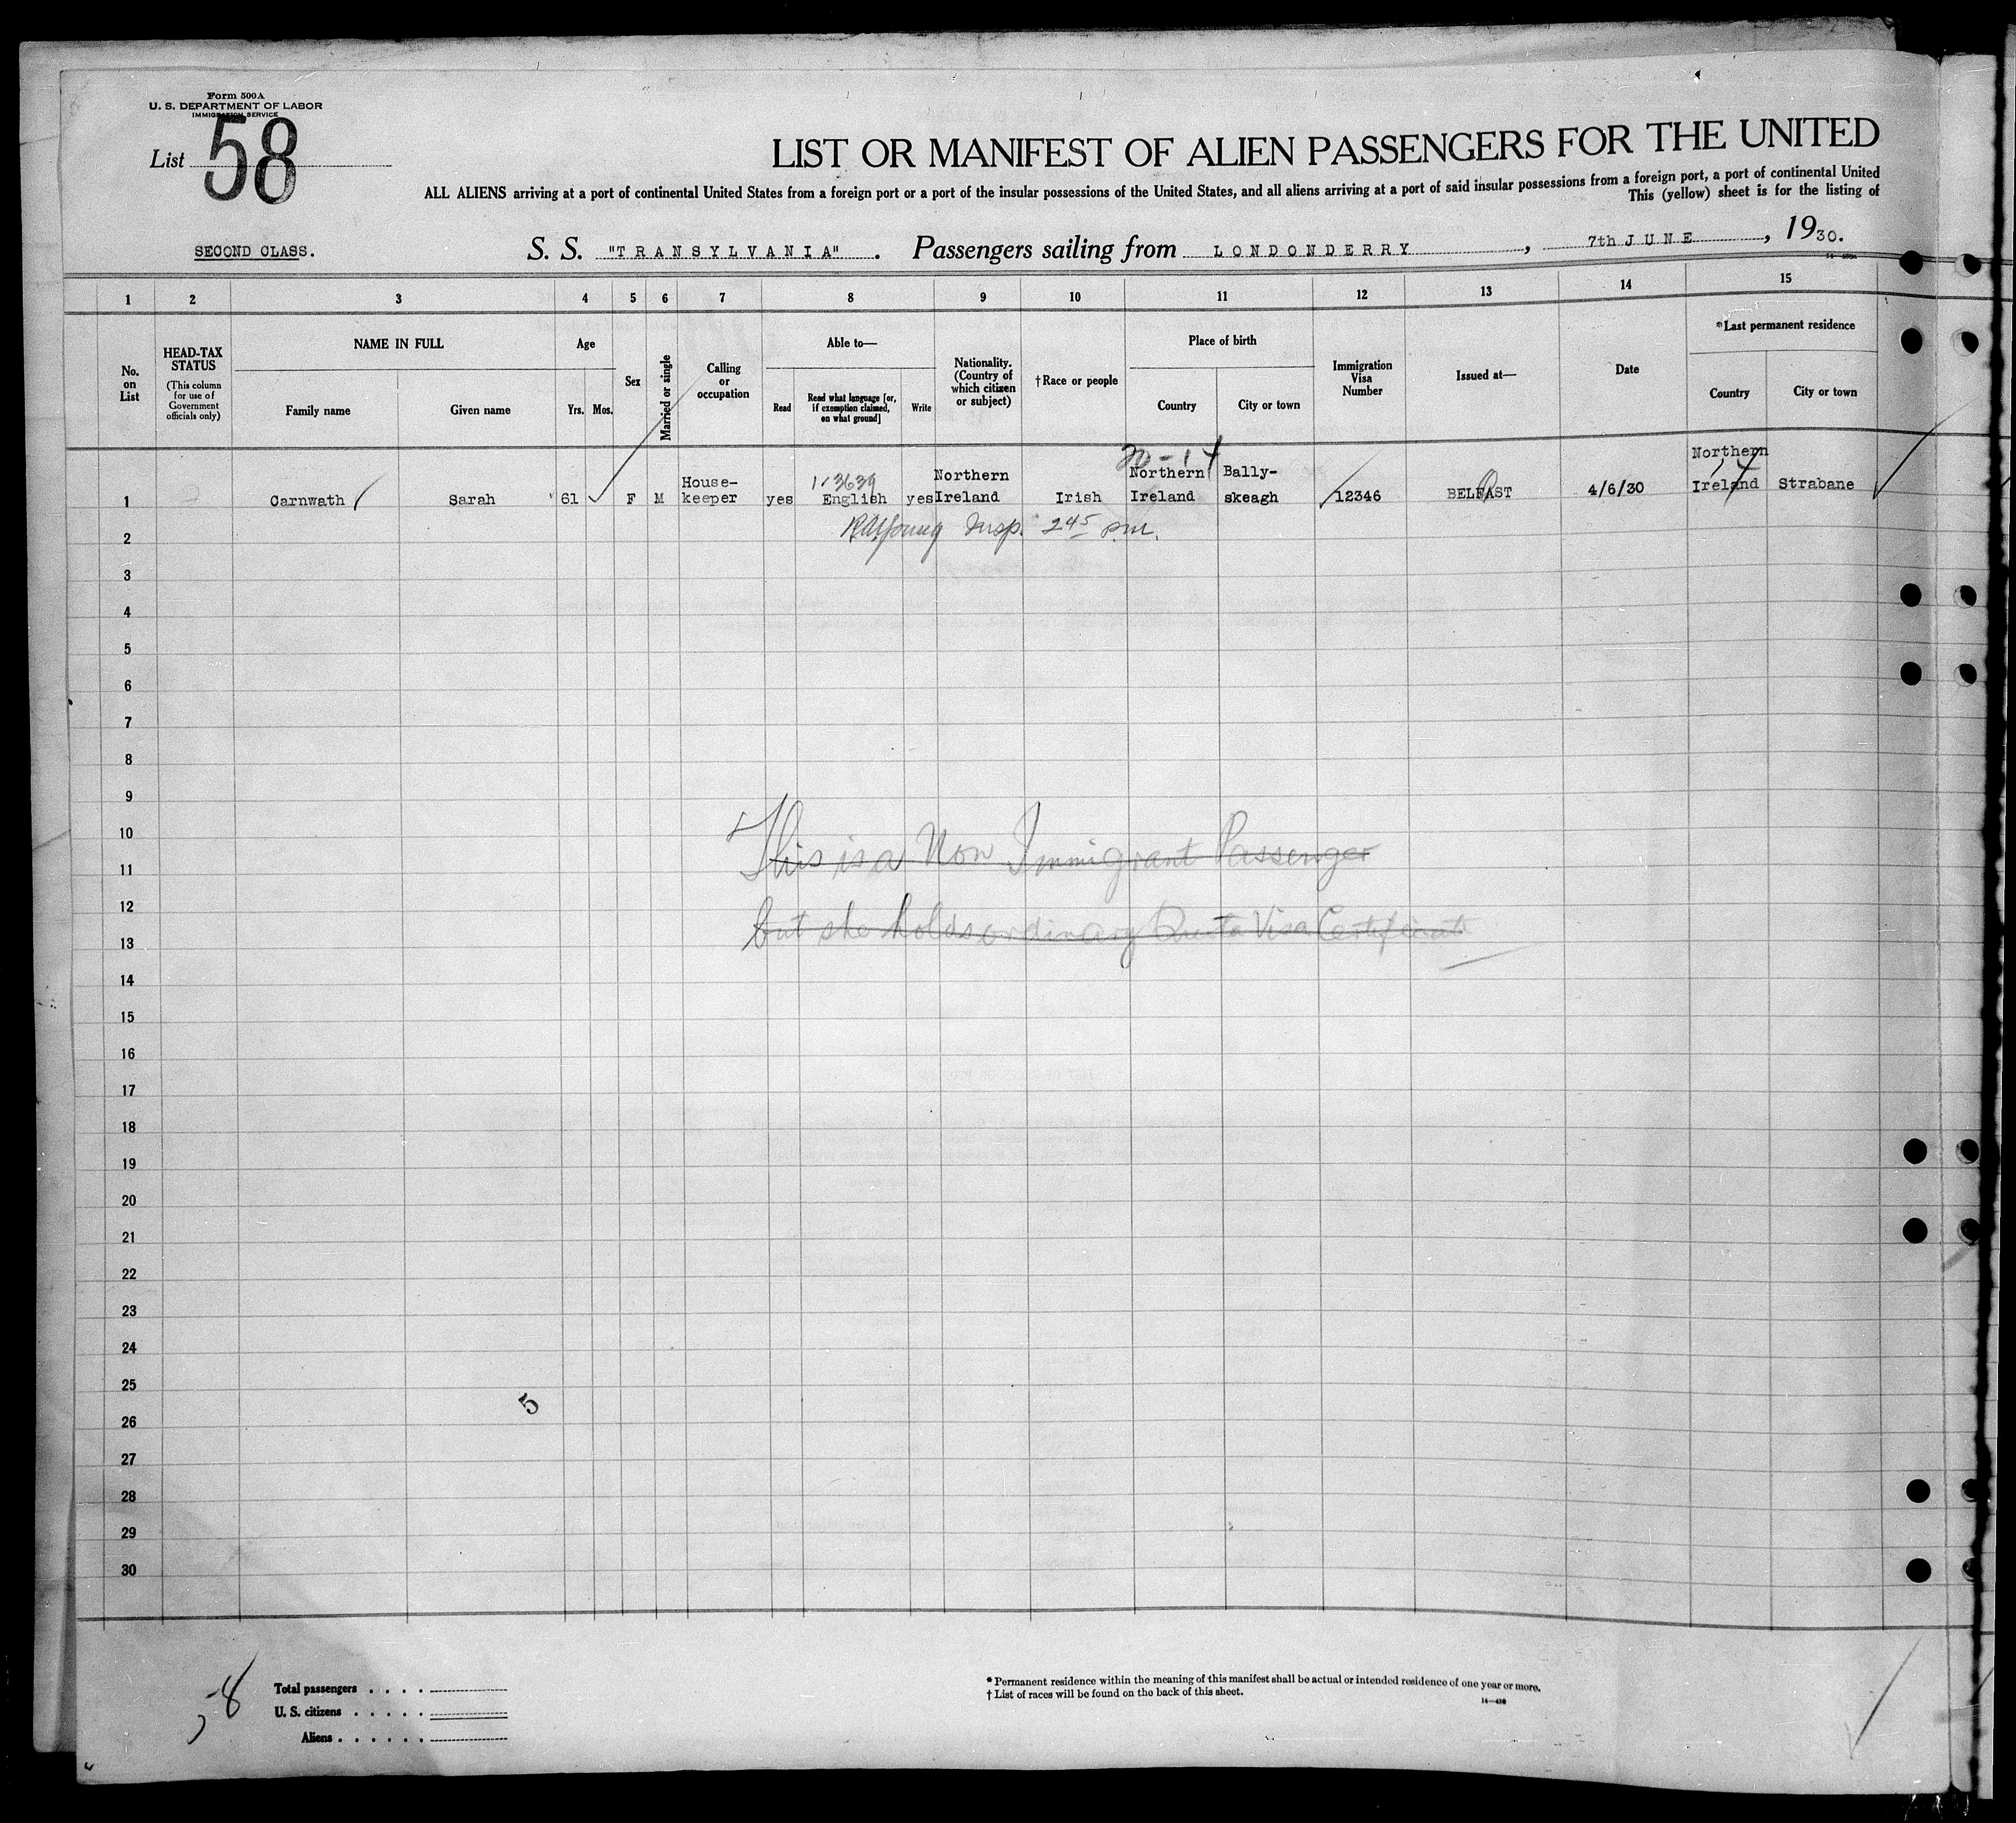 Form 500A
U. S. DEPARTMENT OF LABOR
IMMIGRATION SERVICE
List 58
LIST OR MANIFEST OF ALIEN PASSENGERS FOR THE UNITED
ALL ALIENS arriving at a port of continental United States from a foreign port or a port of the insular possessions of the United States, and all aliens arriving at a port of said insular possessions from a foreign port, a port of continental United
This (yellow) sheet is for the listing of
SECOND CLASS.
S. S. "TRANSYLVANIA". Passengers sailing from LONDONDERRY, 7th JUNE, 1930.
1 2 3 4 5 6 7 8 9 10 11 12 13 14 15
No. on List
HEAD-TAX STATUS
(This column for use of Government officials only)
NAME IN FULL
Family name
Given name
Age
Yrs. Mos.
Sex
Married or single
Calling or occupation
Able to—
Read
Read what language [or, if exemption claimed, on what ground]
Write
Nationality. (Country of which citizen or subject)
† Race or people
Place of birth
Country
City or town
Immigration Visa Number
Issued at—
Date
*Last permanent residence
Country
City or town
1 Carnwath Sarah 61 F M House-keeper yes English yes Northern Ireland Irish Northern Ireland Bally-skeagh 12346 BELFAST 4/6/30 Northern Ireland Strabane
2 Insp. 2 45 pm.
3
4
5
6
7
8
9
10
This is a Non Immigrant Passenger
11
12
but she holds ordinary Quota Visa Certificate
13
14
15
16
17
18
19
20
21
22
23
24
25
5
26
27
28
29
30
58
Total passengers
U. S. citizens
Aliens
* Permanent residence within the meaning of this manifest shall be actual or intended residence of one year or more.
† List of races will be found on the back of this sheet.